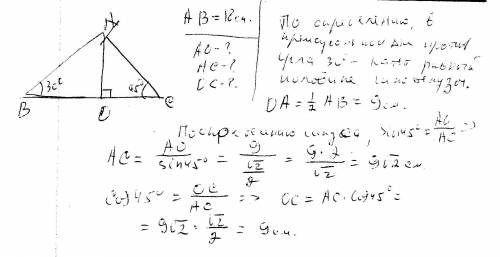 A
30°
45°
B
O
C
AB = 18 см.
AO - ?
AC - ?
OC - ?
По определению, в
прямоугольном против
угла 30° - катет равный
половине гипотенузы.
OA = 1/2 AB = 9 см.
По определению синуса, sin 45° = AO/AC =>
AC = AO/sin45° = 9/(√2/2) = 9·2/√2 = 9√2 см.
Cos 45° = OC/AC => OC = AC · Cos 45° =
= 9√2 · √2/2 = 9 см.